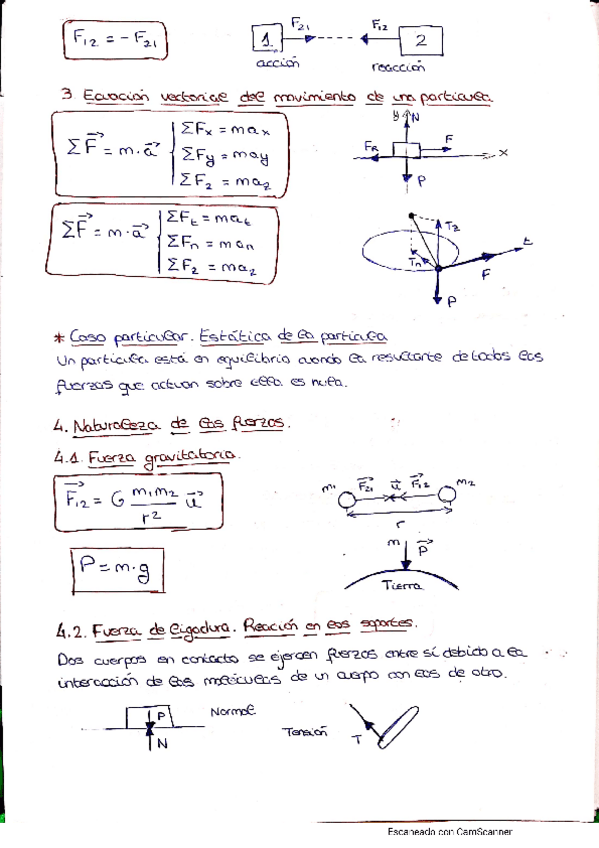 F12 = - F21
1.
F21
F12
2
acción
reacción
3 Ecuación vectorial del movimiento de una partícula
ΣF⃗ = m·a⃗
ΣFx = max
ΣFy = may
ΣFz = maz
y
N
FR
F
x
P
ΣF⃗ = m·a⃗
ΣFt = mat
ΣFn = man
ΣFz = maz
Tz
Tn
t
F
P
* Caso particular. Estática de la partícula
Un partícula está en equilibrio cuando la resultante de todos las
fuerzas que actuan sobre ella es nula.
4. Naturaleza de las fuerzas.
4.1. Fuerza gravitatoria.
F⃗12 = G m1m2/r2 u⃗
m1
F⃗21
u⃗
F⃗12
m2
r
P = m·g
m
P⃗
Tierra
4.2. Fuerza de ligadura. Reacción en los soportes.
Dos cuerpos en contacto se ejercen fuerzas entre sí debido a la
interacción de las moléculas de un cuerpo con las de otro.
P
N
Normal
Tensión
T
Escaneado con CamScanner